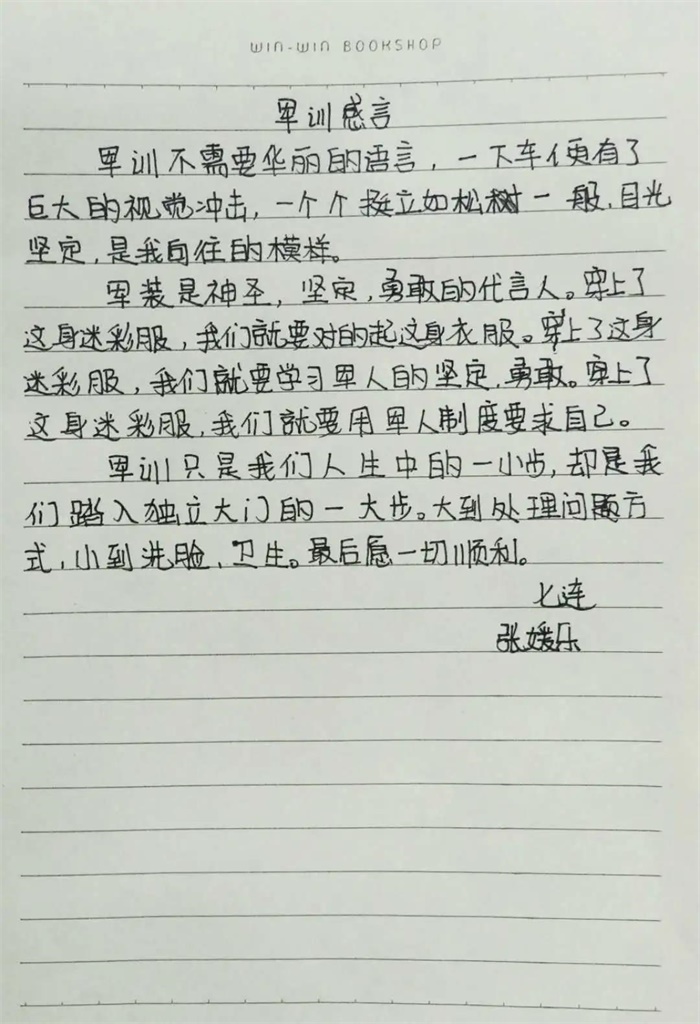 WIN-WIN BOOKSHOP
军训感言
军训不需要华丽的语言，一下车便有了
巨大的视觉冲击，一个个挺立如松树一般，目光
坚定，是我向往的模样。
军装是神圣，坚定，勇敢的代言人。穿上了
这身迷彩服，我们就要对的起这身衣服。穿上了这身
迷彩服，我们就要学习军人的坚定，勇敢。穿上了
这身迷彩服，我们就要用军人制度要求自己。
军训只是我们人生中的一小步，却是我
们踏入独立大门的一大步。大到处理问题方
式，小到洗脸，卫生。最后愿一切顺利。
七连
张媛乐